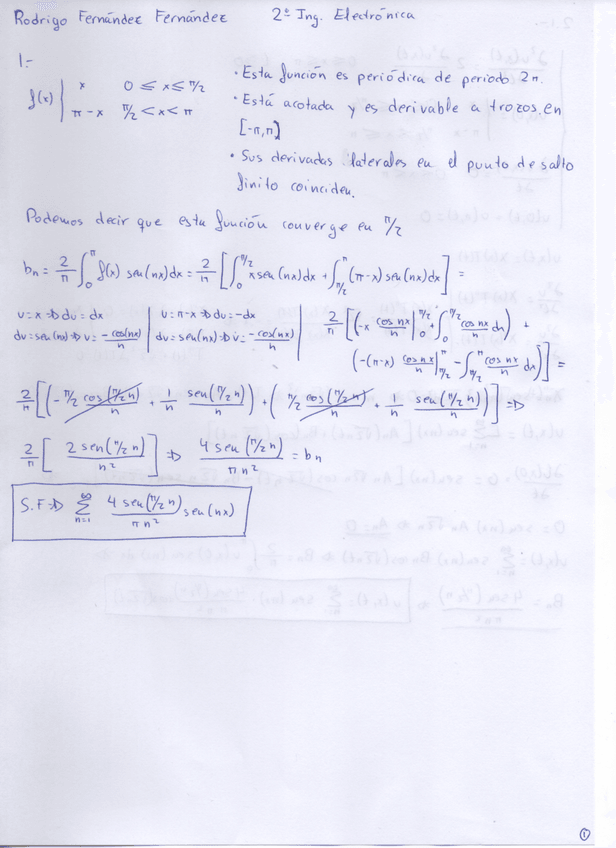 Rodrigo Fernández Fernández 2º Ing. Electrónica
1.-
f(x) | x 0 ≤ x ≤ π/2
π-x π/2 < x < π
· Esta función es periódica de periodo 2π.
· Está acotada y es derivable a trozos en
[-π,π]
· Sus derivadas laterales en el punto de salto
finito coinciden.
Podemos decir que esta función converge en π/2
bn = 2/π ∫₀^π f(x) sen(nx)dx = 2/π [ ∫₀^π/2 x sen(nx)dx + ∫π/2^π (π-x) sen(nx)dx ] =
u = x ⇒ du = dx | u = π-x ⇒ du = -dx |
dv = sen(nx) ⇒ v = -cos(nx)/n | dv = sen(nx) ⇒ v = -cos(nx)/n |
2/π [ ( -x cos nx/n |₀^π/2 + ∫₀^π/2 cos nx/n dx ) +
( -(π-x) cos nx/n |π/2^π - ∫π/2^π cos nx/n dx ) ] =
2/π [ ( -π/2 cos(π/2 n)/n + 1/n sen(π/2 n)/n ) + ( π/2 cos(π/2 n)/n + 1/n sen(π/2 n)/n ) ] ⇒
2/π [ 2 sen(π/2 n)/n² ] ⇒ 4 sen(π/2 n)/πn² = bn
S.F ⇒ ∑n=1^∞ 4 sen(π/2 n)/πn² sen(nx)
1